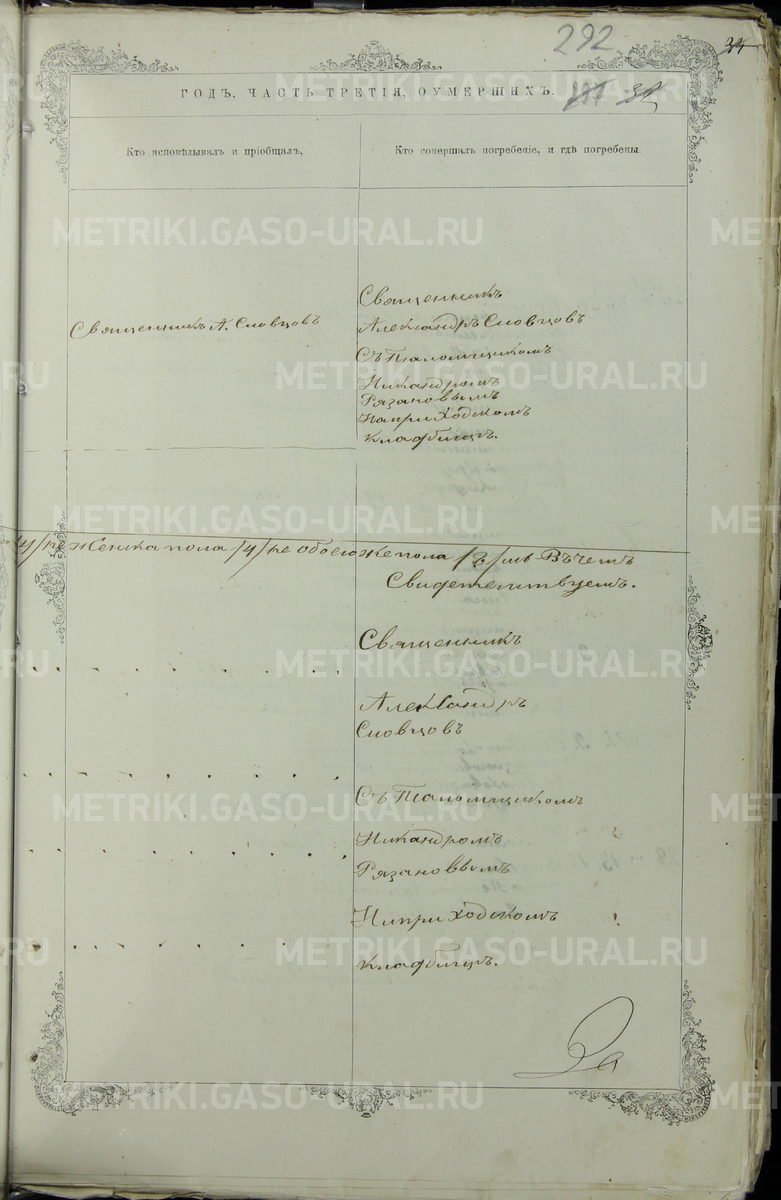 292
34
ГОДЪ, ЧАСТЬ ТРЕТІЯ, ОУМЕРШИХЪ.
Кто исповѣдывалъ и пріобщалъ,
Кто совершалъ погребеніе, и гдѣ погребены.
Священникъ
Священникъ А. Словцовъ
Александръ Словцовъ
Съ Псаломщикомъ
Никандромъ
Рязановымъ
На приходскомъ
кладбищѣ.
/4/ не обоего же пола /3/
Свидетелствуемъ.
Священникъ
Александръ
Словцовъ
Съ Псаломщикомъ
Никандромъ
Рязановымъ
На приходскомъ
кладбищѣ.
METRIKI.GASO-URAL.RU